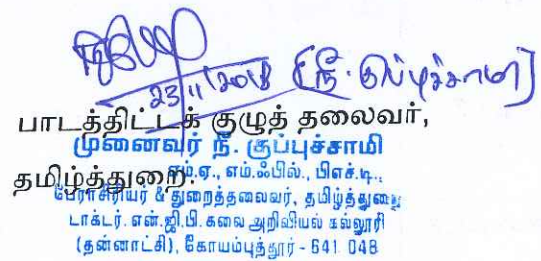 23/11/2018 (நீ. குப்புச்சாமி)
பாடத்திட்டக் குழுத் தலைவர்,
முனைவர் நீ. குப்புச்சாமி
எம்.ஏ., எம்.ஃபில்., பிஎச்.டி.,
தமிழ்த்துறை.
பேராசிரியர் & துறைத்தலைவர், தமிழ்த்துறை
டாக்டர். என்.ஜி.பி. கலை அறிவியல் கல்லூரி
(தன்னாட்சி), கோயம்புத்தூர் - 641 048